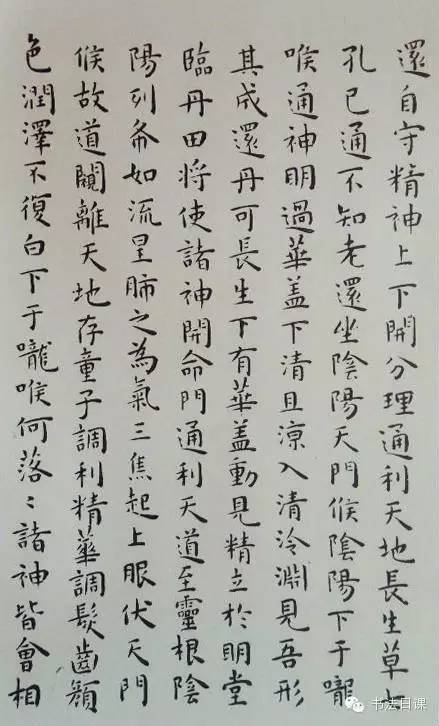 還自守精神上下開分理通利天地長生草七
孔已通不知老還坐陰陽天門候陰陽下于嚨
喉通神明過華盖下清且涼入清泠淵見吾形
其成還丹可長生下有華盖動見精立於明堂
臨丹田將使諸神開命門通利天道至靈根陰
陽列布如流星肺之為氣三焦起上眼伏天門
候故道闚離天地存童子調利精華調髮齒顏
色潤澤不復白下于嚨喉何落〻諸神皆會相
书法日课